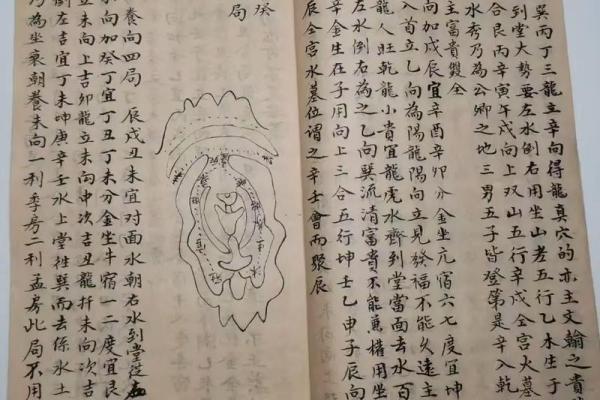 巽丙丁三龍立辛向得龍真穴的亦主文翰之貴
到堂大勢要左水倒右用坐山老五行乙木生于
合艮丙辛寅午戌向上双山五行辛戌仝宫火墓
水秀乃為公卿之地三男五子皆登第是辛入乾
主富貴雙全
向加戌辰宜辛酉辛卯分金坐亢宿六七度宜坤
入首立乙向為陽龍陽向立見發福不能久遠主
龍人旺乾龍小貴宜龍虎水齊到堂當面去水百
左水倒右為之乙向巽流清富貴不能萬積用坐
辛金生在子用向上三合五行坤壬乙申子辰向
辰仝宫水墓位謂之辛壬會而聚辰
癸局
養向四局 辰戌丑未宜对面水朝右水到堂從左
向加癸丁宜丁丑丁未分金坐牛宿一二度宜艮
立未向上吉卯龍立未向中次吉丑龍扦未向次吉
倒左吉宜丁未坤庚辛壬水上堂牲巽而去係水土
乃為坐衰朝養未向一利季房二利孟房此局不用